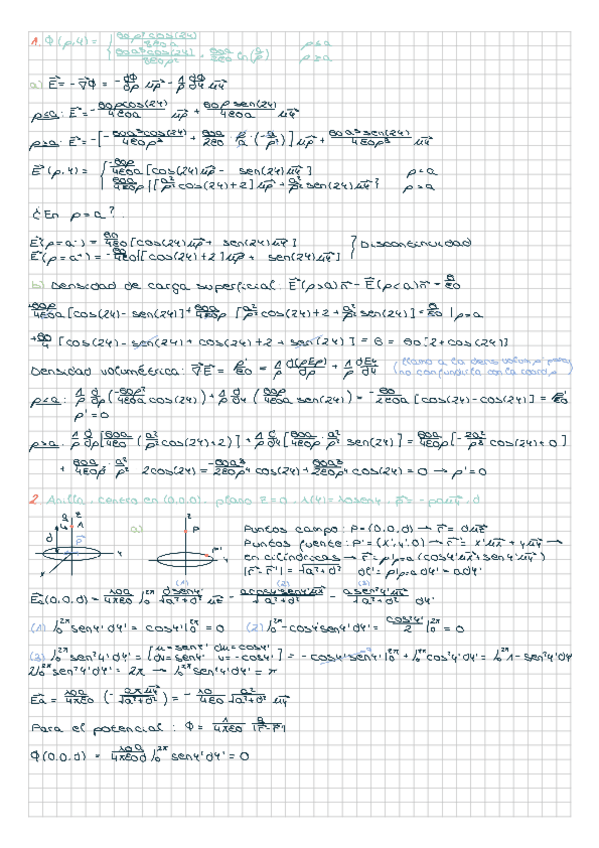 1. Φ(ρ,φ) = { σ0ρ² cos(2φ)/8ε0a ρ≤a
σ0a³cos(2φ)/8ε0ρ² + σ0a/2ε0 ln(a/ρ) ρ≥a
a) E⃗ = -∇⃗Φ = -dΦ/dρ uρ⃗ - 1/ρ dΦ/dφ uφ⃗
ρ≤a: E⃗ = -σ0ρcos(2φ)/4ε0a uρ⃗ + σ0ρ sen(2φ)/4ε0a uφ⃗
ρ≥a: E⃗ = -[-σ0a³cos(2φ)/4ε0ρ³ + σ0a/2ε0 · ρ/a · (-a/ρ²)] uρ⃗ + σ0a³sen(2φ)/4ε0ρ³ uφ⃗
E⃗(ρ,φ) = { -σ0ρ/4ε0a [cos(2φ)uρ⃗ - sen(2φ)uφ⃗] ρ<a
σ0a/4ε0ρ {[a²/ρ² cos(2φ)+2]uρ⃗ + a²/ρ² sen(2φ)uφ⃗} ρ>a
¿En ρ=a?.
E⃗(ρ=a⁻) = σ0/4ε0 [cos(2φ)uρ⃗ + sen(2φ)uφ⃗] } Discontinuidad
E⃗(ρ=a⁺) = -σ0/4ε0 {[cos(2φ)+2]uρ⃗ + sen(2φ)uφ⃗]
b) Densidad de carga superficial: E⃗(ρ>a)n⃗ - E⃗(ρ<a)n⃗ = σ/ε0
σ0ρ/4ε0a [cos(2φ) - sen(2φ)] + σ0a/4ε0ρ [a²/ρ² cos(2φ)+2 + a²/ρ² sen(2φ)] = σ/ε0 |ρ=a
+σ0/4 [cos(2φ) - sen(2φ) + cos(2φ)+2 + sen(2φ)] = σ = σ0[2+cos(2φ)]
Densidad volumétrica: ∇⃗E⃗ = ρ'/ε0 = 1/ρ d(ρEρ)/dρ + 1/ρ dEφ/dφ (llamo a la dens. volum. ρ' para no confundirla con la coord. ρ)
ρ<a: 1/ρ d/dρ (-σ0ρ²/4ε0a cos(2φ)) + 1/ρ d/dφ (σ0ρ/4ε0a sen(2φ)) = -σ0/2ε0a [cos(2φ) - cos(2φ)] = ρ'/ε0
ρ' = 0
ρ>a: 1/ρ d/dρ [σ0a/4ε0 (a²/ρ² cos(2φ)+2)] + 1/ρ d/dφ [σ0a/4ε0ρ a²/ρ² sen(2φ)] = σ0a/4ε0ρ [-2a²/ρ³ cos(2φ)+0]
+ σ0a/4ε0ρ² · a²/ρ² 2cos(2φ) = -σ0a³/2ε0ρ⁴ cos(2φ) + σ0a³/2ε0ρ⁴ cos(2φ) = 0 → ρ' = 0
2. Anilla, centro en (0,0,0), plano z=0, λ(φ)=λ0senφ, p⃗ = -pπuy⃗, d
a)
Puntos campo: P=(0,0,d) → r⃗ = duz⃗
Puntos fuente: P'=(x',y',0) → r⃗' = x'ux⃗ + y'uy⃗ →
en cilíndricas → r⃗' = ρ'|ρ=a (cosφ'ux⃗ + senφ'uy⃗)
|r⃗-r⃗'| = √a²+d² dl' = ρ'|ρ=a dφ' = adφ'
(1) (2) (3)
E⃗a(0,0,d) = λ0a/4πε0 ∫₀^2π dsenφ'/√a²+d² uz⃗ - acosφ'senφ'ux⃗/√a²+d² - asen²φ'uy⃗/√a²+d² dφ'
(1) ∫₀^2π senφ'dφ' = cosφ'|₀^2π = 0 (2) ∫₀^2π -cosφ'senφ'dφ' = cos²φ'/2 |₀^2π = 0
(3) ∫₀^2π sen²φ'dφ' = [u=senφ' du=cosφ' dv=senφ' v=-cosφ'] = -cosφ'senφ'|₀^2π + ∫₀^2π cos²φ'dφ' = ∫₀^2π 1-sen²φ'dφ'
2∫₀^2π sen²φ'dφ' = 2π → ∫₀^2π sen²φ'dφ' = π
E⃗a = λ0a/4πε0 (-aπuy⃗/√a²+d²) = -λ0/4ε0 a²/√a²+d² uy⃗
Para el potencial: Φ = 1/4πε0 q/|r⃗-r⃗'|
Φ(0,0,d) = λ0a/4πε0d ∫₀^2π senφ'dφ' = 0